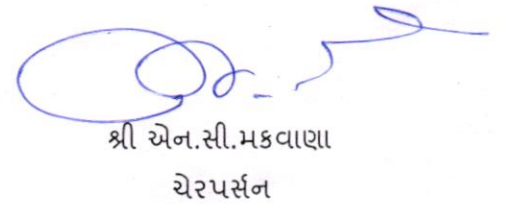 શ્રી એન.સી.મકવાણા
ચેરપર્સન